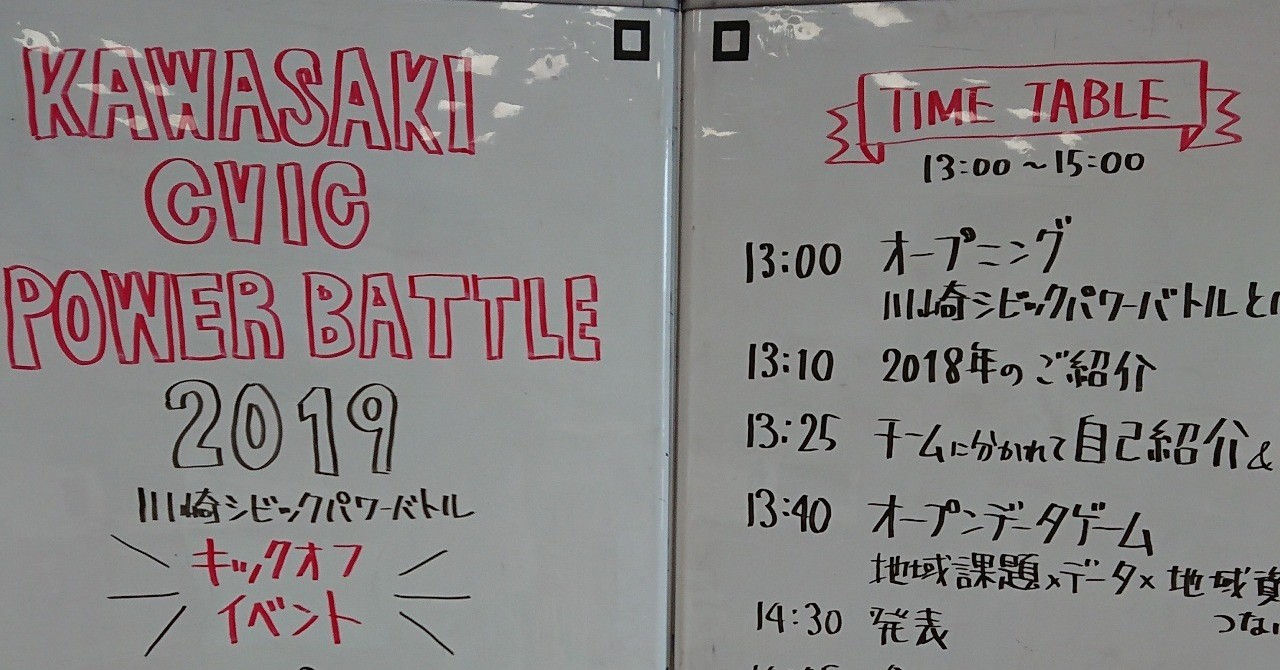 KAWASAKI
CVIC
POWER BATTLE
2019
川崎シビックパワーバトル
キックオフ
イベント
TIME TABLE
13:00～15:00
13:00 オープニング
川崎シビックパワーバトルと
13:10 2018年のご紹介
13:25 チームに分かれて自己紹介&
13:40 オープンデータゲーム
地域課題×データ×地域資
つない
14:30 発表